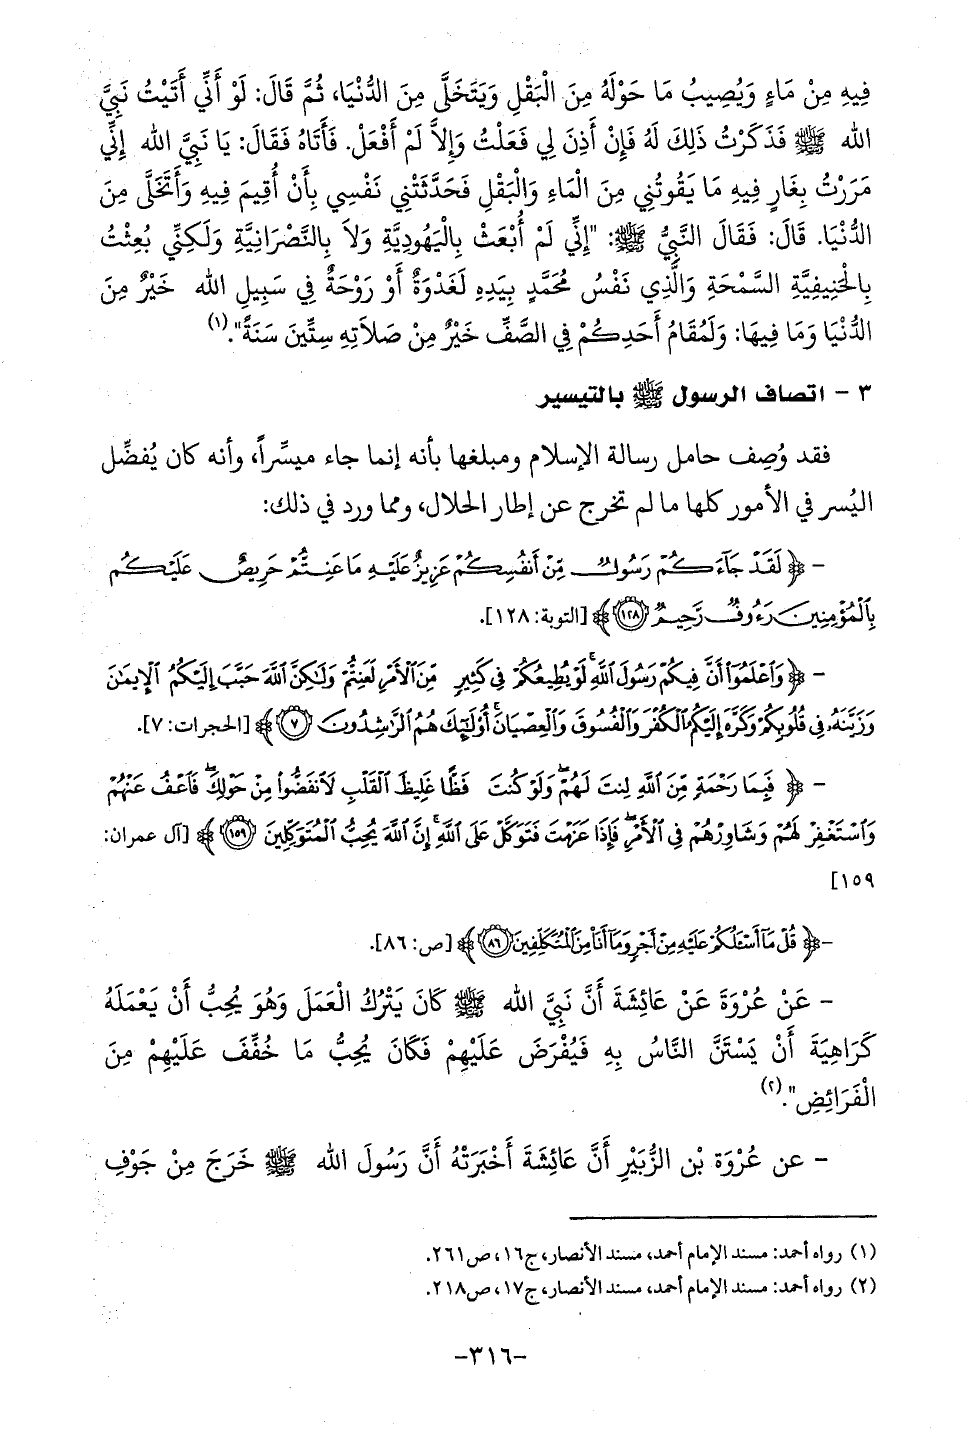 فِيهِ مِنْ مَاءٍ وَيُصِيبُ مَا حَوْلَهُ مِنَ الْبَقْلِ وَيَتَخَلَّى مِنَ الدُّنْيَا، ثُمَّ قَالَ: لَوْ أَنِّي أَتَيْتُ نَبِيَّ
الله ﷺ فَذَكَرْتُ ذَلِكَ لَهُ فَإِنْ أَذِنَ لِي فَعَلْتُ وَإِلاَّ لَمْ أَفْعَلْ. فَأَتَاهُ فَقَالَ: يَا نَبِيَّ الله إِنِّي
مَرَرْتُ بِغَارٍ فِيهِ مَا يَقُوتُنِي مِنَ الْمَاءِ وَالْبَقْلِ فَحَدَّثَتْنِي نَفْسِي بِأَنْ أُقِيمَ فِيهِ وَأَتَخَلَّى مِنَ
الدُّنْيَا. قَالَ: فَقَالَ النَّبِيُّ ﷺ: "إِنِّي لَمْ أُبْعَثْ بِالْيَهُودِيَّةِ وَلاَ بِالنَّصْرَانِيَّةِ وَلَكِنِّي بُعِثْتُ
بِالْحَنِيفِيَّةِ السَّمْحَةِ وَالَّذِي نَفْسُ مُحَمَّدٍ بِيَدِهِ لَغَدْوَةٌ أَوْ رَوْحَةٌ فِي سَبِيلِ الله خَيْرٌ مِنَ
الدُّنْيَا وَمَا فِيهَا: وَلَمُقَامُ أَحَدِكُمْ فِي الصَّفِّ خَيْرٌ مِنْ صَلاَتِهِ سِتِّينَ سَنَةً".(١)
٣ - اتصاف الرسول ﷺ بالتيسير
فقد وُصِف حامل رسالة الإسلام ومبلغها بأنه إنما جاء ميسِّراً، وأنه كان يُفضِّل
اليُسر في الأمور كلها ما لم تخرج عن إطار الحلال، ومما ورد في ذلك:
- ﴿ لَقَدْ جَآءَكُمْ رَسُولٌ مِّنْ أَنفُسِكُمْ عَزِيزٌ عَلَيْهِ مَا عَنِتُّمْ حَرِيصٌ عَلَيْكُم
بِٱلْمُؤْمِنِينَ رَءُوفٌ رَّحِيمٌ ١٢٨ ﴾ [التوبة: ١٢٨].
- ﴿ وَٱعْلَمُوٓا۟ أَنَّ فِيكُمْ رَسُولَ ٱللَّهِ ۚ لَوْ يُطِيعُكُمْ فِى كَثِيرٍ مِّنَ ٱلْأَمْرِ لَعَنِتُّمْ وَلَـٰكِنَّ ٱللَّهَ حَبَّبَ إِلَيْكُمُ ٱلْإِيمَـٰنَ
وَزَيَّنَهُۥ فِى قُلُوبِكُمْ وَكَرَّهَ إِلَيْكُمُ ٱلْكُفْرَ وَٱلْفُسُوقَ وَٱلْعِصْيَانَ ۚ أُو۟لَـٰٓئِكَ هُمُ ٱلرَّٰشِدُونَ ٧ ﴾ [الحجرات: ٧].
- ﴿ فَبِمَا رَحْمَةٍ مِّنَ ٱللَّهِ لِنتَ لَهُمْ ۖ وَلَوْ كُنتَ فَظًّا غَلِيظَ ٱلْقَلْبِ لَٱنفَضُّوا۟ مِنْ حَوْلِكَ ۖ فَٱعْفُ عَنْهُمْ
وَٱسْتَغْفِرْ لَهُمْ وَشَاوِرْهُمْ فِى ٱلْأَمْرِ ۖ فَإِذَا عَزَمْتَ فَتَوَكَّلْ عَلَى ٱللَّهِ ۚ إِنَّ ٱللَّهَ يُحِبُّ ٱلْمُتَوَكِّلِينَ ١٥٩ ﴾ [آل عمران:
١٥٩]
- ﴿ قُلْ مَآ أَسْـَٔلُكُمْ عَلَيْهِ مِنْ أَجْرٍ وَمَآ أَنَا۠ مِنَ ٱلْمُتَكَلِّفِينَ ٨٦ ﴾ [ص: ٨٦].
- عَنْ عُرْوَةَ عَنْ عَائِشَةَ أَنَّ نَبِيَّ الله ﷺ كَانَ يَتْرُكُ الْعَمَلَ وَهُوَ يُحِبُّ أَنْ يَعْمَلَهُ
كَرَاهِيَةَ أَنْ يَسْتَنَّ النَّاسُ بِهِ فَيُفْرَضَ عَلَيْهِمْ فَكَانَ يُحِبُّ مَا خُفِّفَ عَلَيْهِمْ مِنَ
الْفَرَائِضِ".(٢)
- عن عُرْوَة بْن الزُّبَيْرِ أَنَّ عَائِشَةَ أَخْبَرَتْهُ أَنَّ رَسُولَ الله ﷺ خَرَجَ مِنْ جَوْفِ
(١) رواه أحمد: مسند الإمام أحمد، مسند الأنصار، ج١٦، ص٢٦١.
(٢) رواه أحمد: مسند الإمام أحمد، مسند الأنصار، ج١٧، ص٢١٨.
-٣١٦-